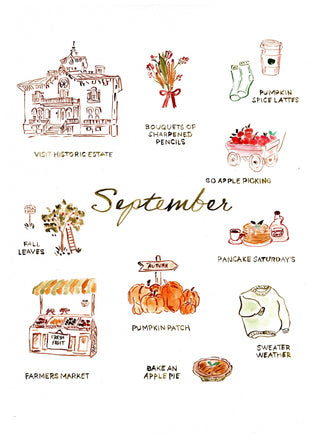 PUMPKIN
SPICE LATTES
BOUQUETS OF
SHARPENED
PENCILS
VISIT HISTORIC ESTATE
GO APPLE PICKING
September
FALL
LEAVES
PANCAKE SATURDAYS
AUTUMN
PUMPKIN PATCH
FRESH
FRUIT
SWEATER
WEATHER
FARMERS MARKET
BAKE AN
APPLE PIE